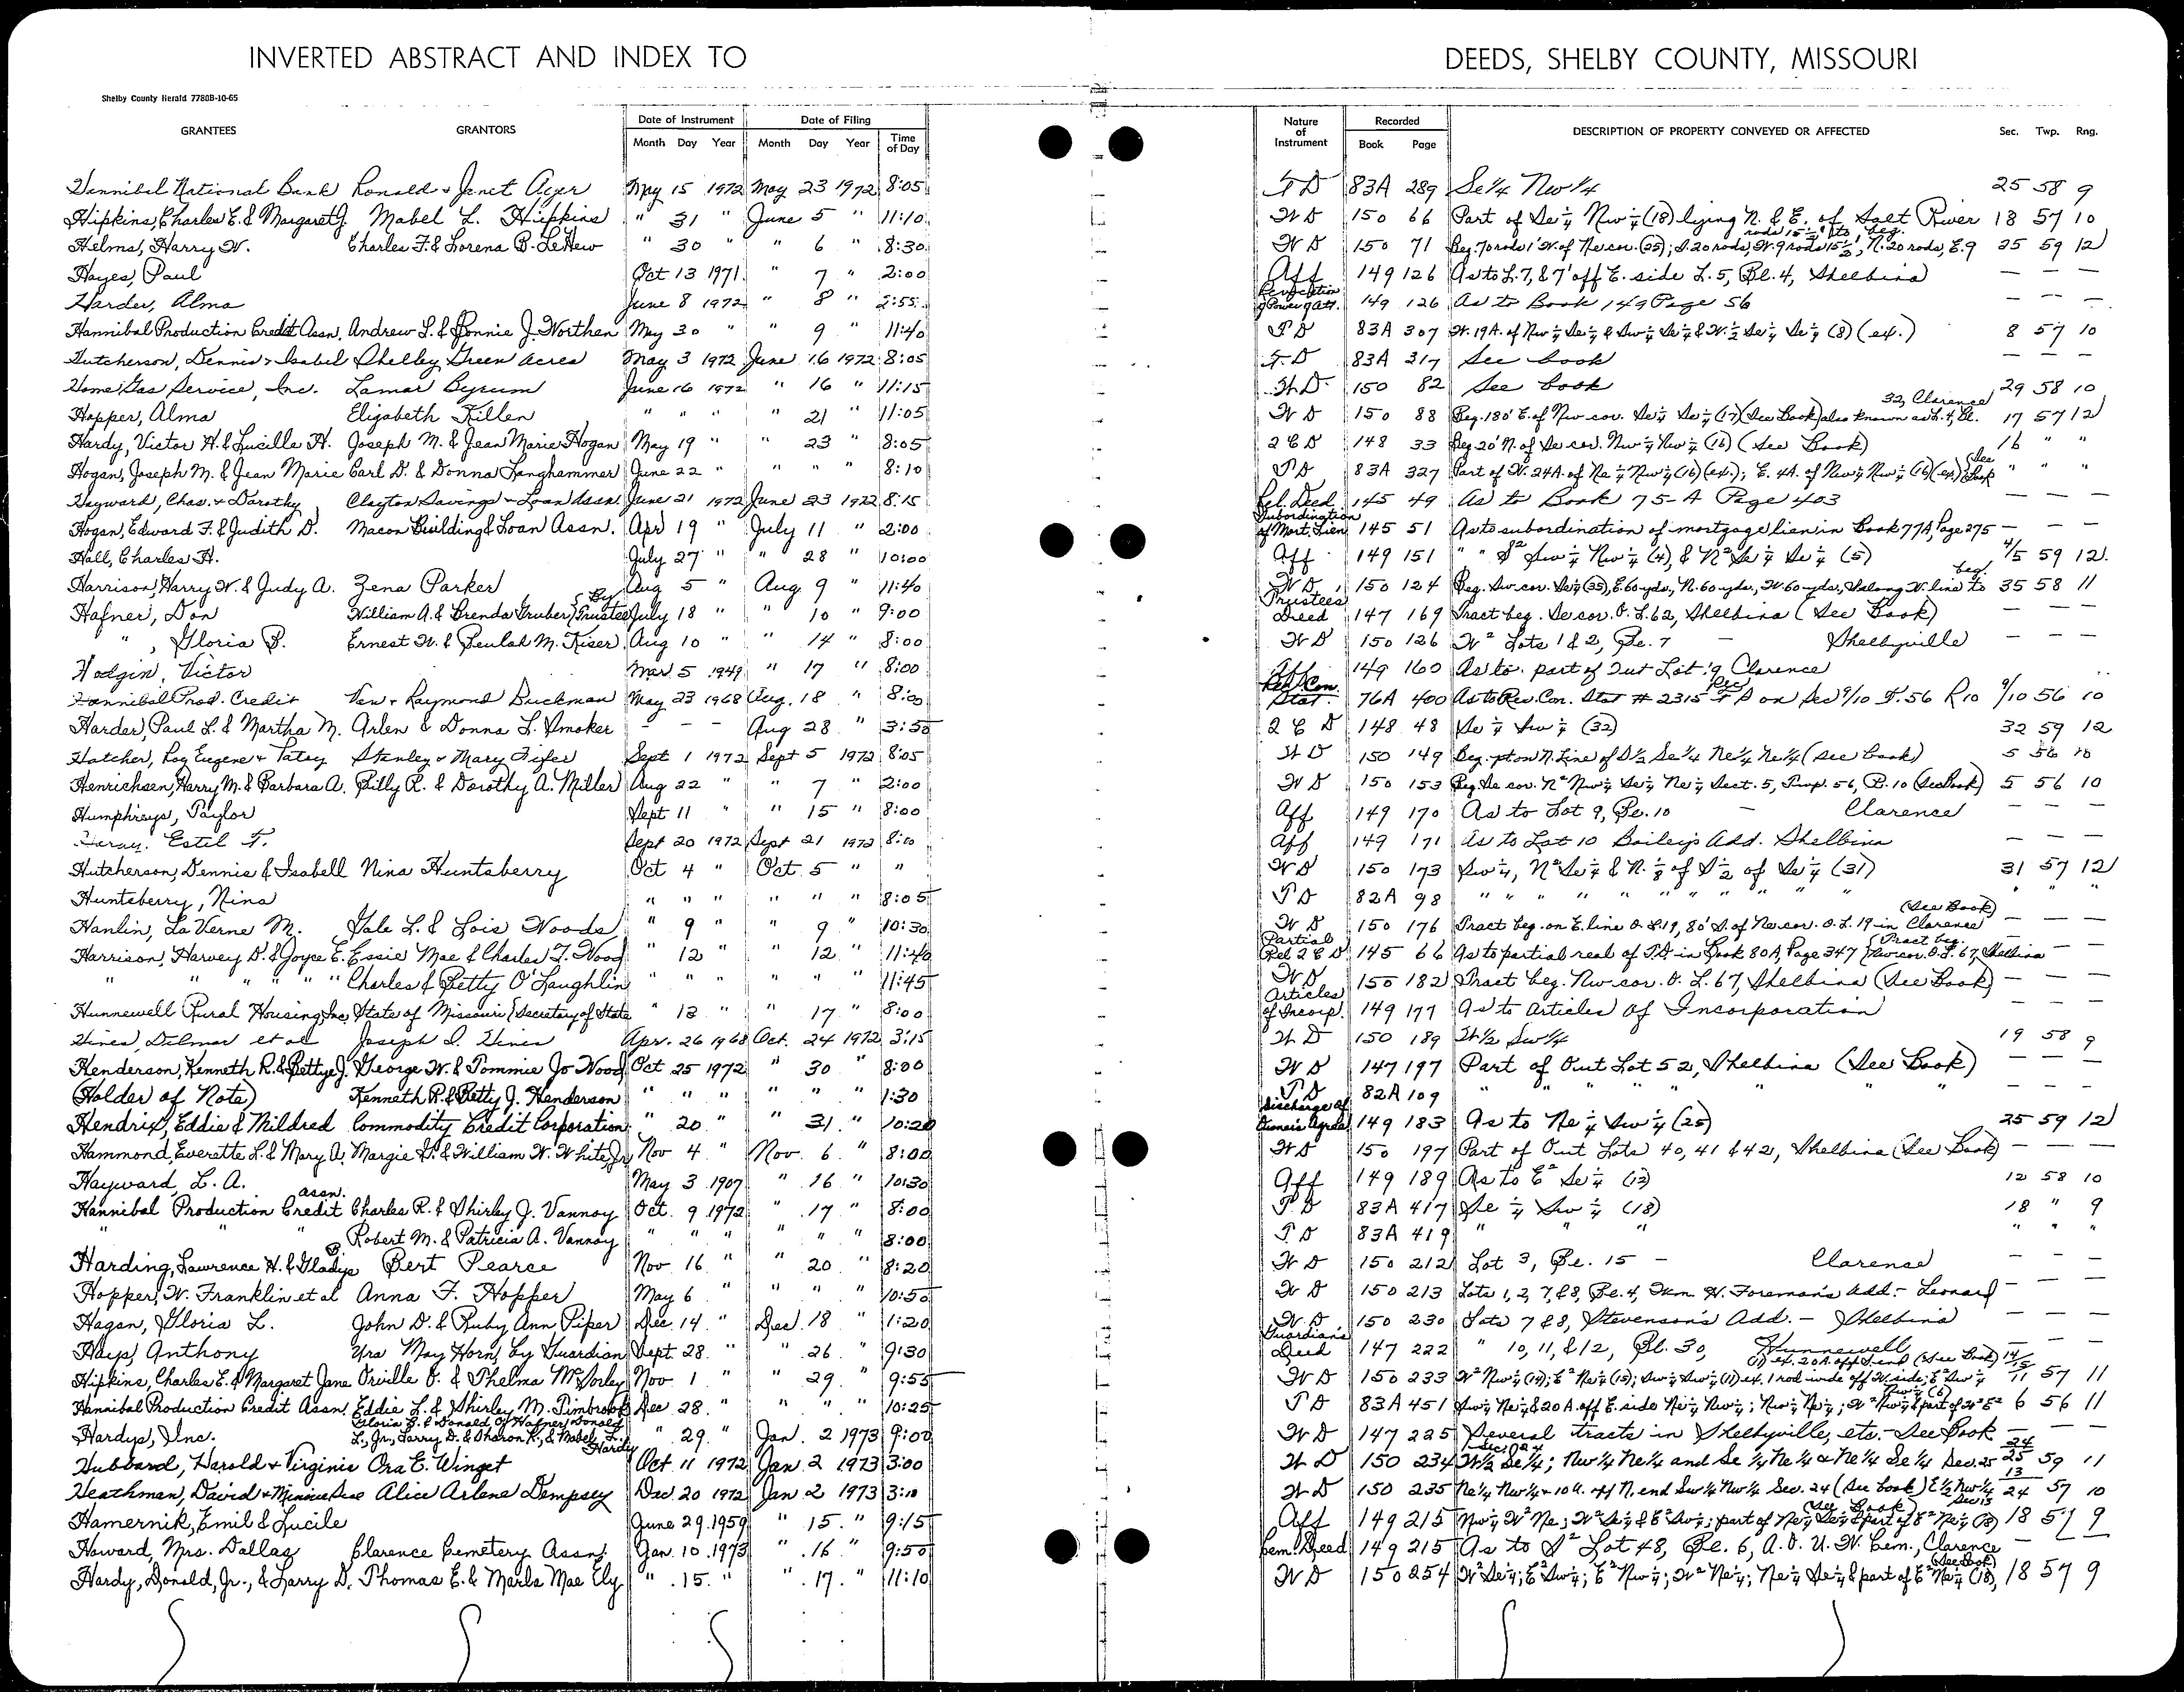 INVERTED ABSTRACT AND INDEX TO DEEDS, SHELBY COUNTY, MISSOURI
Shelby County Herald 7780B-10-65
GRANTEES GRANTORS Date of Instrument Month Day Year Date of Filing Month Day Year Time of Day Nature of Instrument Recorded Book Page DESCRIPTION OF PROPERTY CONVEYED OR AFFECTED Sec. Twp. Rng.
Hannibal National Bank Ronald & Janet Ager May 15 1972 May 23 1972 8:05 T D 83A 289 Se1/4 Nw1/4 25 58 9
Hipkins, Charles E. & Margaret J. Mabel L. Hipkins " 31 " June 5 " 11:10 W D 150 66 Part of Se 1/4 Nw 1/4 (18) lying N. & E. of Salt River 18 57 10
Helms, Harry W. Charles F. & Lorena B. LeHew " 30 " " 6 " 8:30 W D 150 71 Beg. 70 rods 1' W. of Ne cor. (25); S. 20 rods, W. 9 rods 15 1/2', N. 20 rods, E. 9 rods 15 1/2' to beg. 25 59 12
Hayes, Paul Oct 13 1971 " 7 " 2:00 Aff 149 126 As to L. 7, & 7' off E. side L. 5, Bl. 4, Shelbina — — —
Harder, Alma June 8 1972 " 8 " 2:55 Revocation of Power of Att. 149 126 As to Book 149 Page 56 — — —
Hannibal Production Credit Assn. Andrew L. & Bonnie J. Northen May 30 " " 9 " 11:40 T D 83A 307 W. 19A. of Nw 1/4 Se 1/4 & Sw 1/4 Se 1/4 & W. 1/2 Se 1/4 Se 1/4 (8) (ex.) 8 57 10
Hutcherson, Dennis & Isabel Shelley Green Acres May 3 1972 June 16 1972 8:05 T. D 83A 317 See book — — —
Home Gas Service, Inc. Lamar Byrum June 16 1972 " 16 " 11:15 W. D. 150 82 See book 29 58 10
Hopper, Alma Elizabeth Killen " " " " 21 " 11:05 W D 150 88 Beg. 180' E. of Nw cor. Se 1/4 Se 1/4 (17) (See Book) also known as L. 4, Bl. 32, Clarence 17 57 12
Hardy, Victor H. & Lucille H. Joseph M. & Jean Marie Hogan May 19 " " 23 " 8:05 2 C D 148 33 Beg. 20' N. of Se cor. Nw 1/4 Nw 1/4 (16) (See Book) 16 " "
Hogan, Joseph M. & Jean Marie Carl D. & Donna Langhammer June 22 " " " " 8:10 T D 83A 327 Part of W. 24A. of Ne 1/4 Nw 1/4 (16) (ex.); E. 4A. of Nw 1/4 Nw 1/4 (16) (ex) (See Book " " "
Hayward, Chas. & Dorothy Clayton Savings & Loan Assn June 21 1972 June 23 1972 8:15 Rel. Deed 145 49 As to Book 75-A Page 403 — — —
Hogan, Edward F. & Judith D. Macon Building & Loan Assn. Apr 19 " July 11 " 2:00 Subordination of Mort. Lien 145 51 As to subordination of mortgage lien in Book 77A, Page 275 — — —
Hall, Charles H. July 27 " " 28 " 10:00 Aff 149 151 " " S² Sw 1/4 Nw 1/4 (4), & N² Se 1/4 Se 1/4 (5) 4/5 59 12
Harrison, Harry W. & Judy A. Zena Parker Aug 5 " Aug 9 " 11:40 W D 150 124 Beg. Sw cor. Se 1/4 (35), E. 60 yds., N. 60 yds., W 60 yds., S along W. line to beg. 35 58 11
Hafner, Don William A. & Brenda Gruber } By Trustee July 18 " " 10 " 9:00 Trustees Deed 147 169 Tract beg. Se cor. O. L. 62, Shelbina (See Book) — — —
" , Gloria B. Ernest W. & Beulah M. Kiser Aug 10 " " 14 " 8:00 W D 150 126 W² Lots 1 & 2, Bl. 7 — Shelbyville — — —
Hodgin, Victor Mar. 5 1949 " 17 " 8:00 Aff. 149 160 As to part of Out Lot 9 Clarence
Hannibal Prod. Credit Vera & Raymond Buckman May 23 1968 Aug. 18 " 8:00 Rev. Con. Stat. 76A 400 As to Rev. Con. Stat # 2315 T D on Sec 9/10 T. 56 R 10 9/10 56 10
Harder, Paul L. & Martha M. Arlen & Donna L. Smoker - - - Aug 28 " 3:50 2 C D 148 48 Se 1/4 Sw 1/4 (32) 32 59 12
Hatcher, Roy Eugene & Patsy Stanley & Mary Fifer Sept 1 1972 Sept 5 1972 8:05 W D 150 149 Beg. pt on N. Line of S1/2 Se1/4 Ne1/4 Ne1/4 (See book) 5 56 10
Henrichsen, Harry M. & Barbara A. Billy R. & Dorothy A. Miller Aug 22 " " 7 " 2:00 W D 150 153 Beg. Se cor. N² Nw 1/4 Se 1/4 Ne 1/4 Sect. 5, Twp. 56, R. 10 (See Book) 5 56 10
Humphreys, Taylor Sept 11 " " 15 " 8:00 Aff 149 170 As to Lot 9, Bl. 10 — Clarence — — —
Estil F. Sept 20 1972 Sept 21 1972 8:00 Aff 149 171 As to Lot 10 Bailey's Add. Shelbina — — —
Hutcherson, Dennis & Isabell Nina Huntsberry Oct 4 " Oct. 5 " " W D 150 173 Sw 1/4, N² Se 1/4 & N. 1/8 of S 1/2 of Se 1/4 (31) 31 57 12
Huntsberry, Nina " " " " " " 8:05 T D 82A 98 " " " " " " " " " " " "
Hanlin, La Verne M. Gale L. & Lois Woods " 9 " " 9 " 10:30 W D 150 176 Tract beg. on E. line O. L. 19, 80' S. of Ne cor. O. L. 19 in Clarence (See Book) — — —
Harrison, Harvey D. & Joyce E. Essie Mae & Charles T. Wood " 12 " " 12 " 11:40 Partial Rel 2 C D 145 66 As to partial real of T.D in Book 80A, Page 347 (Tract beg. Nw cor. O. L. 67, Shelbina — —
" " " " " Charles & Betty O'Laughlin " " " " " " 11:45 W D 150 182 Tract beg. Nw cor. O. L. 67, Shelbina (See Book) — — —
Hunnewell Rural Housing, Inc. State of Missouri } Secretary of State " 13 " " 17 " 8:00 Articles of Incorp. 149 177 As to Articles of Incorporation
Hines, Dilmar et al Joseph D. Hines Apr. 26 1968 Oct. 24 1972 3:15 W D 150 189 W1/2 Sw1/4 19 58 9
Henderson, Kenneth R. & Bettye J. George W. & Tommie Jo Wood Oct 25 1972 " 30 " 8:00 W D 147 197 Part of Out Lot 52, Shelbina (See Book) — — —
(Holder of Note) Kenneth R. & Betty J. Henderson " " " " " " 1:30 T D 82A 109 " " " " " " — — —
Hendrix, Eddie & Mildred Commodity Credit Corporation " 20 " " 31 " 10:20 Discharge of Owner's Agree 149 183 As to Ne 1/4 Sw 1/4 (25) 25 59 12
Hammond, Everette L. & Mary A. Margie H. & William W. White, Jr. Nov 4 " Nov. 6 " 8:00 W D 150 197 Part of Out Lots 40, 41 & 42, Shelbina (See Book) — — —
Hayward, L. A. May 3 1907 " 16 " 10:30 Aff 149 189 As to E² Se 1/4 (12) 12 58 10
Hannibal Production Credit assn. Charles R. & Shirley J. Vannoy Oct. 9 1972 " 17 " 8:00 T D 83A 417 Se 1/4 Sw 1/4 (18) 18 " 9
" " " Robert M. & Patricia A. Vannoy " " " " " " 8:00 T D 83A 419 " " " " "
Harding, Lawrence H. & Gladys B. Bert Pearce Nov. 16 " " 20 " 8:20 W D 150 212 Lot 3, Bl. 15 - Clarence — — —
Hopper, W. Franklin et al Anna F. Hopper May 6 " " " " 10:50 W D 150 213 Lots 1, 2, 7, & 8, Bl. 4, Wm. H. Foreman's Add. - Leonard — — —
Hagan, Gloria L. John D. & Ruby Ann Piper Dec. 14 " Dec 18 " 1:20 W D 150 230 Lots 7 & 8, Stevenson's Add. - Shelbina — — —
Hays, Anthony Ura May Horn, by Guardian Sept. 28 " " 26 " 9:30 Guardian's Deed 147 222 " 10, 11, & 12, Bl. 30, Hunnewell — — —
Hipkins, Charles E. & Margaret Jane Orville O. & Thelma McSorley Nov. 1 " " 29 " 9:55 W D 150 233 W² Nw 1/4 (14); E² Ne 1/4 (15); Sw 1/4 Sw 1/4 (11) ex. 1 rod wide off W. side; E² Sw 1/4 (11) ex. 20A. off S. end (See Book) 14/15 11 57 11
Hannibal Production Credit Assn. Eddie L. & Shirley M. Timbrook Dec 28 " " " " 10:25 T D 83A 451 Sw 1/4 Ne 1/4 & 20 A. off E. side Ne 1/4 Nw 1/4; Nw 1/4 Ne 1/4; W² Nw 1/4 & part of W² E² Nw 1/4 (6) 6 56 11
Hardys, Inc. Gloria B. & Donald O. Hafner, Donald L., Jr., Larry D. & Sharon K., & Mabel L. Hardy " 29 " Jan. 2 1973 9:00 W D 147 225 Several tracts in Shelbyville, etc. - See Book — — —
Hubbard, Harold & Virginia Ora E. Winget Oct 11 1972 Jan 2 1973 3:00 W D 150 234 W1/2 Se1/4; Sec. 24 Nw1/4 Ne1/4 and Se 1/4 Ne1/4 & Ne1/4 Se1/4 Sec. 25 24/25 59 11
Heathman, David & Minnie Sue Alice Arlene Dempsey Dec. 20 1972 Jan 2 1973 3:10 W D 150 235 Ne1/4 Nw1/4 & 10 A. off N. end Sw1/4 Nw1/4 Sec. 24 (See book) E1/2 Nw1/4 Sec 13 13/24 57 10
Hamernik, Emil & Lucile June 29 1959 " 15 " 9:15 Aff 149 215 Nw 1/4 W² Ne; W² Se 1/4 & E² Sw 1/4; part of Ne 1/4 Se 1/4 & part of E² Ne 1/4 (18) (See Book) 18 57 9
Howard, Mrs. Dallas Clarence Cemetery Assn. Jan. 10 1973 " 16 " 9:50 Cem. Deed 149 215 As to S² Lot 48, Bl. 6, A. O. U. W. Cem., Clarence — —
Hardy, Donald, Jr., & Larry D. Thomas E. & Marla Mae Ely " 15 " " 17 " 11:10 W D 150 254 W² Se 1/4; E² Sw 1/4; E² Nw 1/4; W² Ne 1/4; Ne 1/4 Se 1/4 & part of E² Ne 1/4 (18) (See Book) 18 57 9